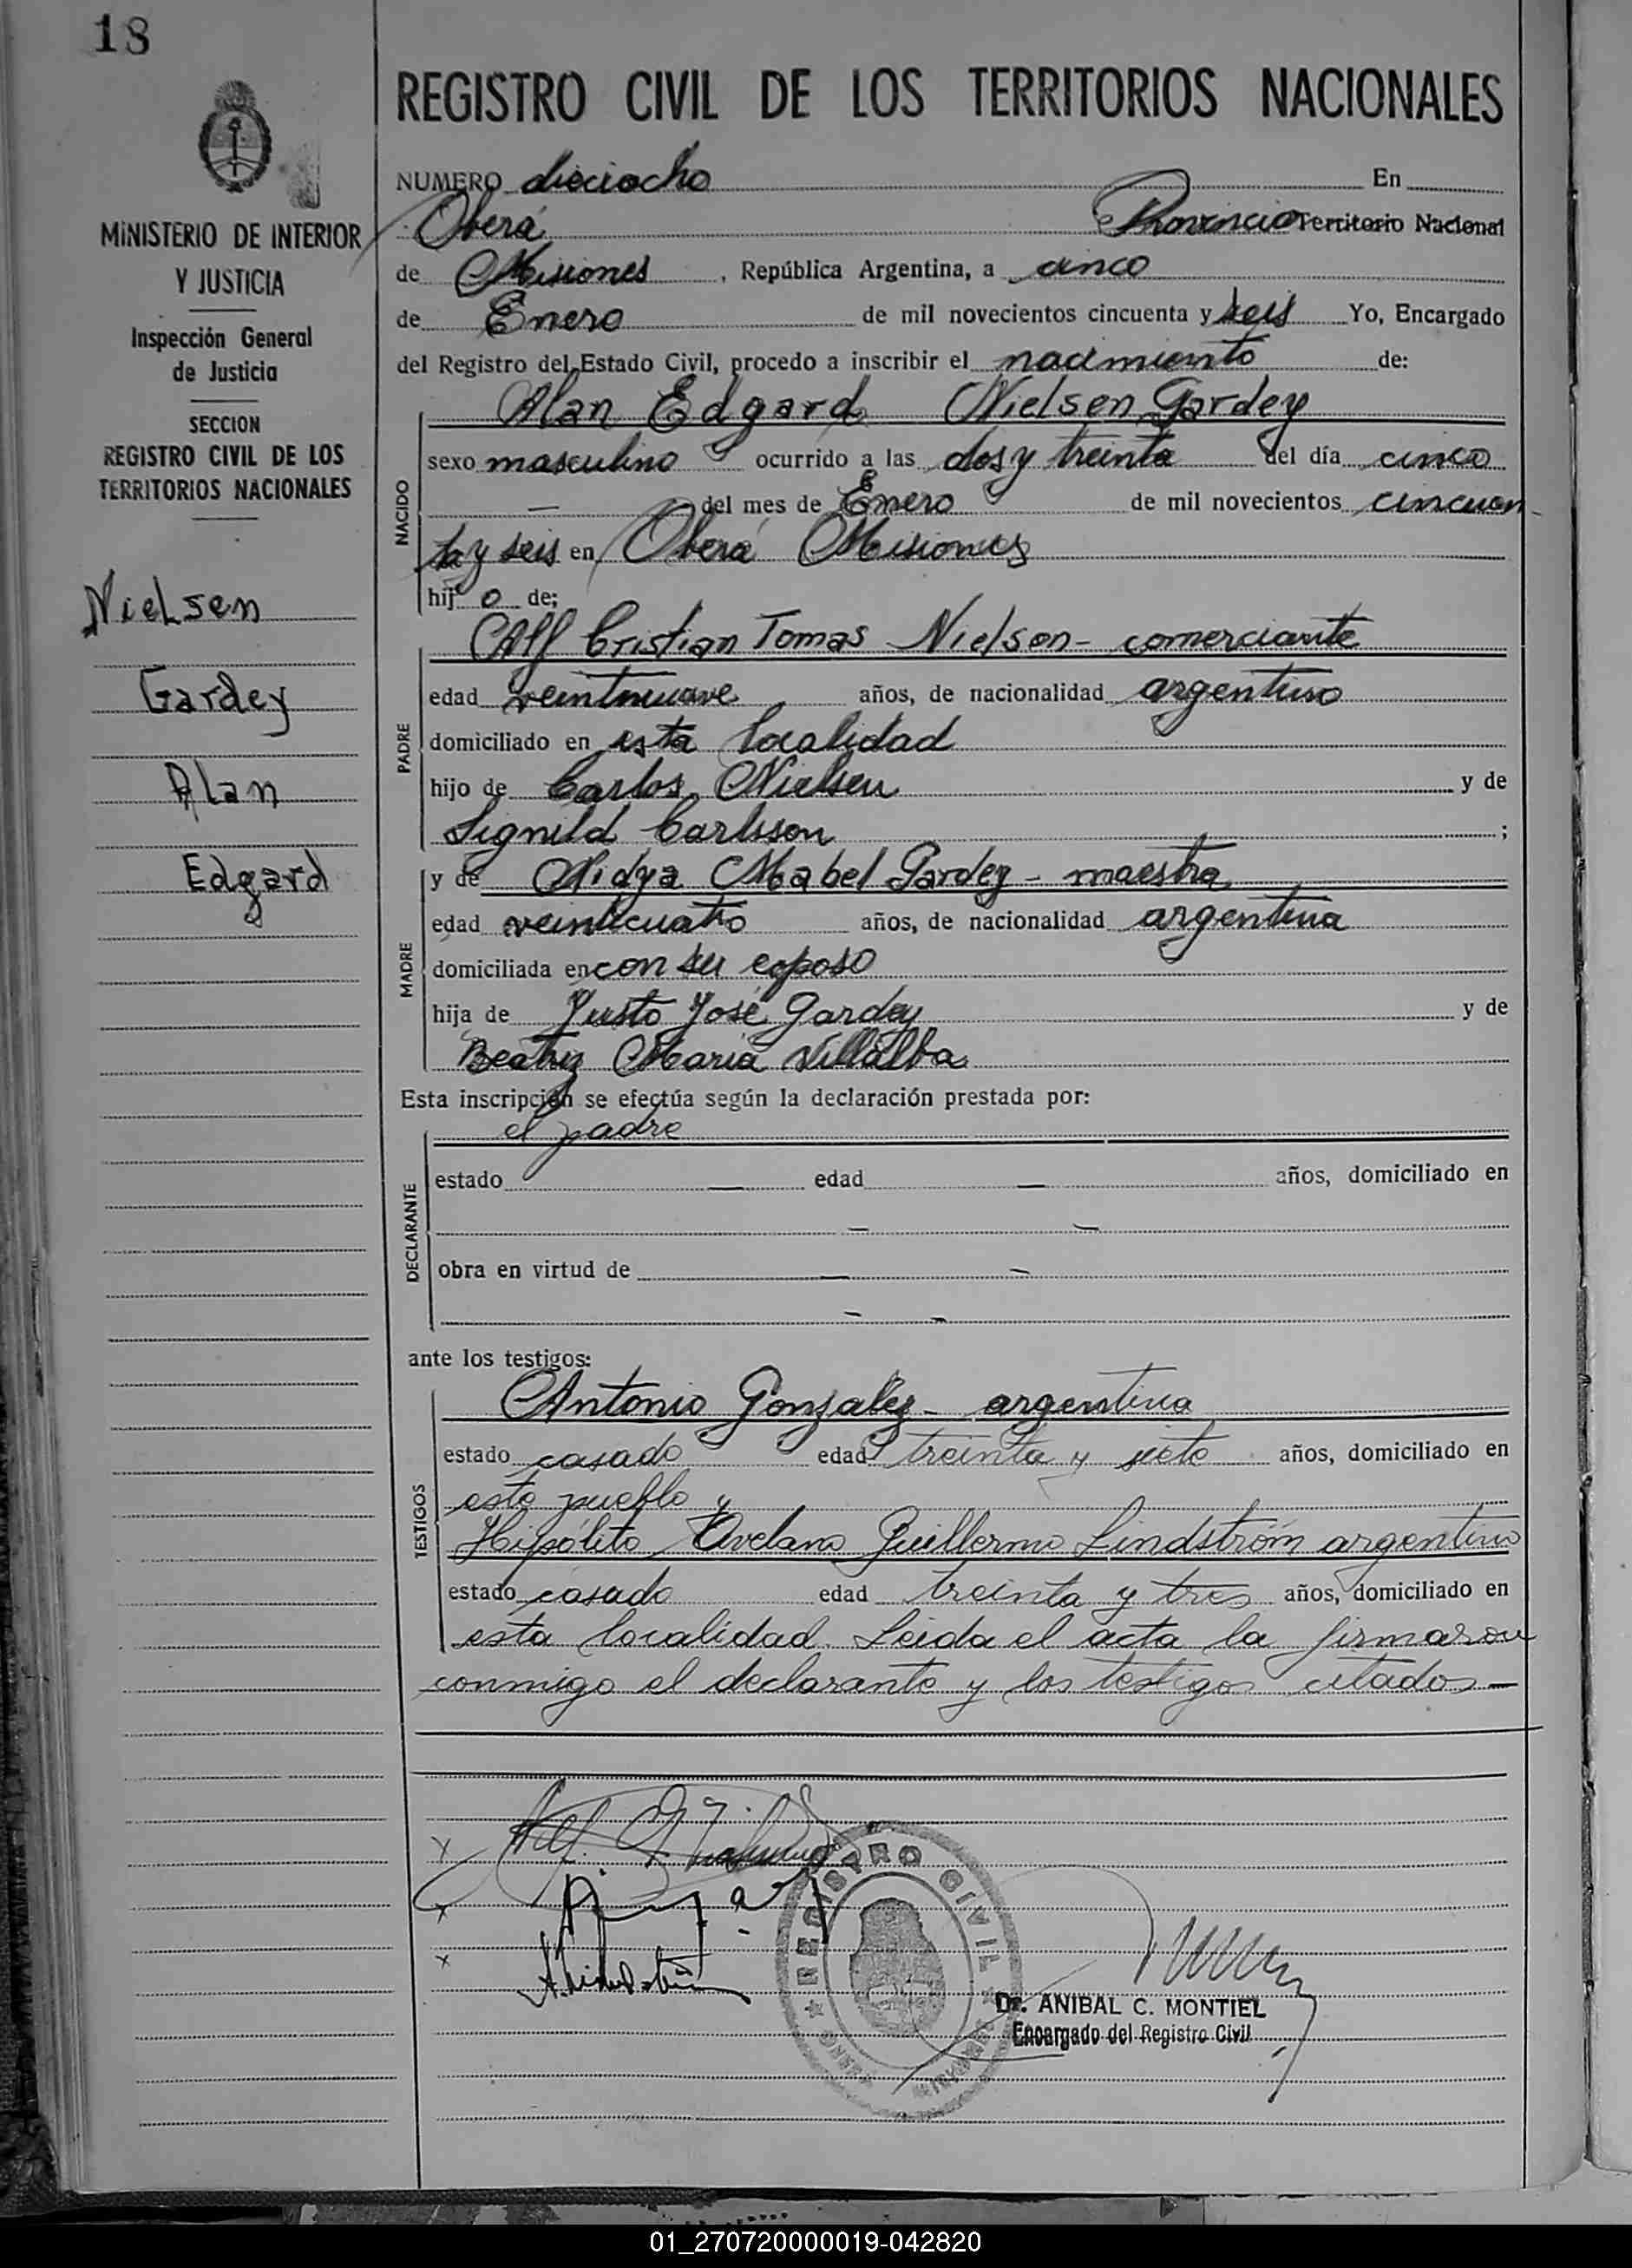 18
REGISTRO CIVIL DE LOS TERRITORIOS NACIONALES
MINISTERIO DE INTERIOR
Y JUSTICIA
Inspección General
de Justicia
SECCION
REGISTRO CIVIL DE LOS
TERRITORIOS NACIONALES
Nielsen
Gardey
Alan
Edgard
NUMERO dieciocho En
Oberá Provincia Territorio Nacional
de Misiones, República Argentina, a cinco
de Enero de mil novecientos cincuenta y seis Yo, Encargado
del Registro del Estado Civil, procedo a inscribir el nacimiento de:
Alan Edgard Nielsen Gardey
NACIDO
sexo masculino ocurrido a las dos y treinta del día cinco
— del mes de Enero de mil novecientos cincuen-
ta y seis en Oberá Misiones
hijo de;
PADRE
Alf Cristian Tomas Nielsen - comerciante
edad veintinueve años, de nacionalidad argentino
domiciliado en esta localidad
hijo de Carlos Nielsen y de
Signild Carlsson ;
MADRE
y de Nidya Mabel Gardey - maestra
edad veinticuatro años, de nacionalidad argentina
domiciliada en con su esposo
hija de Justo José Gardey y de
Beatriz Maria Villalba
Esta inscripción se efectúa según la declaración prestada por:
el padre
DECLARANTE
estado — edad — años, domiciliado en
— —
obra en virtud de — —
- -
ante los testigos:
TESTIGOS
Antonio Gonzalez - argentino
estado casado edad treinta y siete años, domiciliado en
este pueblo y
Hipólito Avelano Guillermo Lindström argentino
estado casado edad treinta y tres años, domiciliado en
esta localidad. Leida el acta la firmaron
conmigo el declarante y los testigos citados —
REGISTRO CIVIL
Dr. ANIBAL C. MONTIEL
Encargado del Registro Civil
01_270720000019-042820